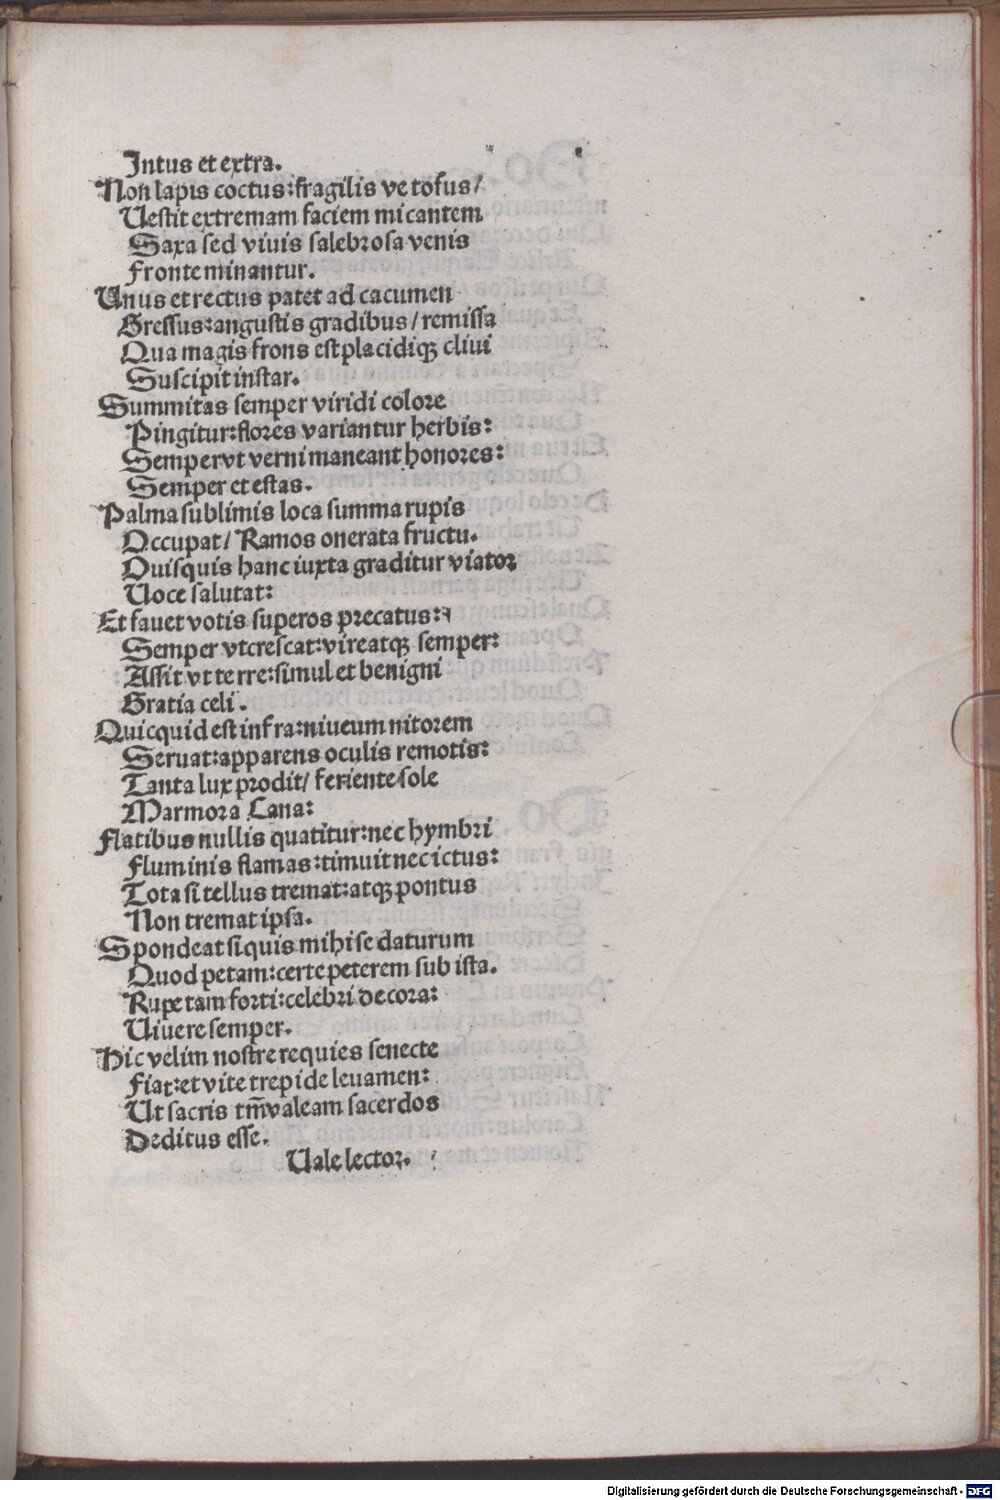 Intus et extra.
Non lapis coctus: fragilis ve tofus/
Uestit extremam faciem micantem
Saxa sed viuis salebrosa venis
Fronte minantur.
Unus et rectus patet ad cacumen
Gressus: angustis gradibus/ remissa
Qua magis frons est placidiqꝫ cliui
Suscipit instar.
Summitas semper viridi colore
Pingitur: flores variantur herbis:
Semper vt verni maneant honores:
Semper et estas.
Palma sublimis loca summa rupis
Occupat/ Ramos onerata fructu.
Quisquis hanc iuxta graditur viator
Uoce salutat:
Et fauet votis superos precatus:
Semper vt crescat: vireatqꝫ semper:
Assit vt terre: simul et benigni
Gratia celi.
Quicquid est infra: niueum nitorem
Seruat: apparens oculis remotis:
Tanta lux prodit/ feriente sole
Marmora Cana:
Flatibus nullis quatitur: nec hymbri
Fluminis flamas: timuit nec ictus:
Tota si tellus tremat: atqꝫ pontus
Non tremat ipsa.
Spondeat siquis mihi se daturum
Quod petam: certe peterem sub ista.
Rupe tam forti: celebri decora:
Uiuere semper.
Hic velim nostre requies senecte
Fiat: et vite trepide leuamen:
Ut sacris tm̄ valeam sacerdos
Deditus esse.
Uale lector.
Digitalisierung gefördert durch die Deutsche Forschungsgemeinschaft - DFG